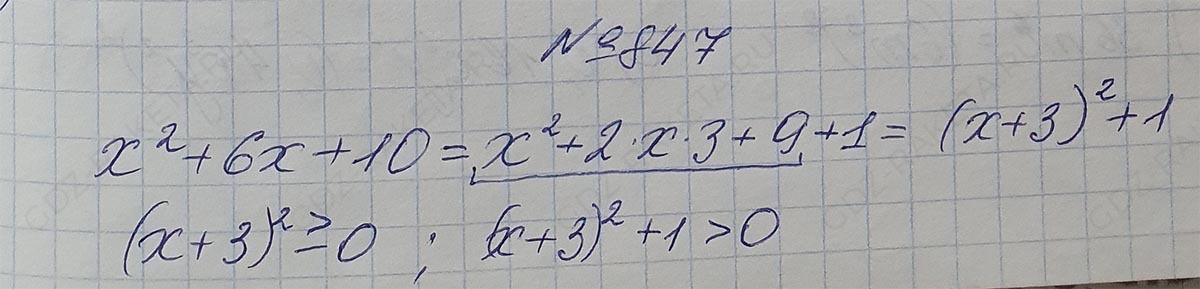 №847
x² + 6x + 10 = x² + 2·x·3 + 9 + 1 = (x+3)² + 1
(x+3)² ≥ 0 ; (x+3)² + 1 > 0